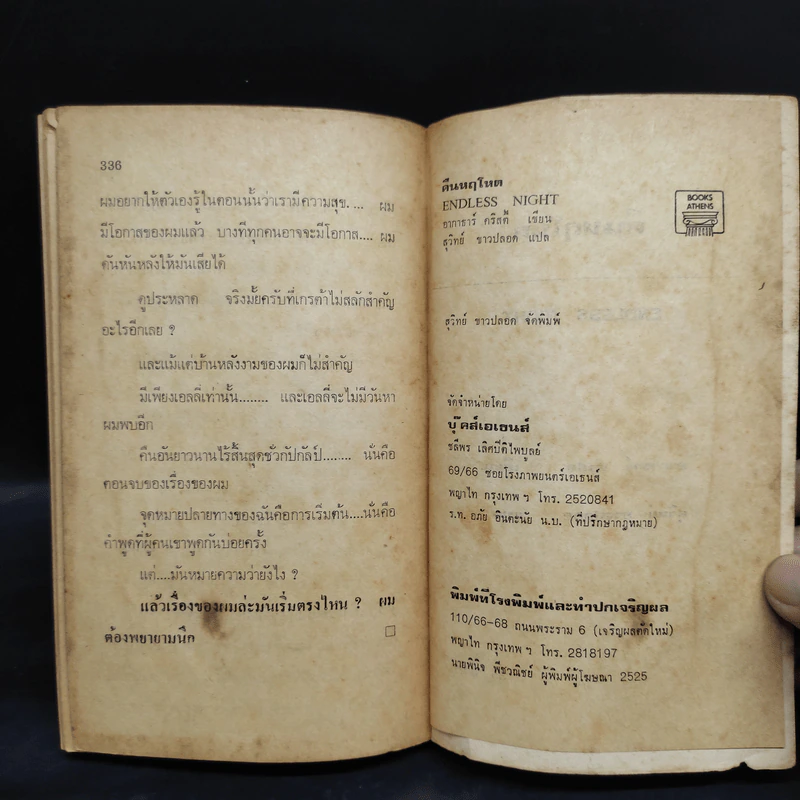 336
ผมอยากให้ตัวเองรู้ในตอนนั้นว่าเรามีความสุข.... ผม
มีโอกาสของผมแล้ว บางทีทุกคนอาจจะมีโอกาส.... ผม
ดันหันหลังให้มันเสียได้
ดูประหลาด จริงมั้ยครับที่เกรต้าไม่สลักสำคัญ
อะไรอีกเลย ?
และแม้แต่บ้านหลังงามของผมก็ไม่สำคัญ
มีเพียงเอลลี่เท่านั้น........ และเอลลี่จะไม่มีวันหา
ผมพบอีก
คืนอันยาวนานไร้สิ้นสุดชั่วกัปกัลป์........ นั่นคือ
ตอนจบของเรื่องของผม
จุดหมายปลายทางของฉันคือการเริ่มต้น....นั่นคือ
คำพูดที่ผู้คนเขาพูดกันบ่อยครั้ง
แต่....มันหมายความว่ายังไง ?
แล้วเรื่องของผมล่ะมันเริ่มตรงไหน ? ผม
ต้องพยายามนึก
คืนหฤโหด
ENDLESS NIGHT
อากาธาร์ คริสตี้ เขียน
สุวิทย์ ขาวปลอด แปล
BOOKS
ATHENS
สุวิทย์ ขาวปลอด จัดพิมพ์
จัดจำหน่ายโดย
บุ๊คส์เอเธนส์
ชลีพร เลิศปิติไพบูลย์
69/66 ซอยโรงภาพยนตร์เอเธนส์
พญาไท กรุงเทพ ฯ โทร. 2520841
ร.ท. อภัย อินตะนัย น.บ. (ที่ปรึกษากฎหมาย)
พิมพ์ที่โรงพิมพ์และทำปกเจริญผล
110/66-68 ถนนพระราม 6 (เจริญผลตัดใหม่)
พญาไท กรุงเทพ ฯ โทร. 2818197
นายพินิจ พืชวณิชย์ ผู้พิมพ์ผู้โฆษณา 2525